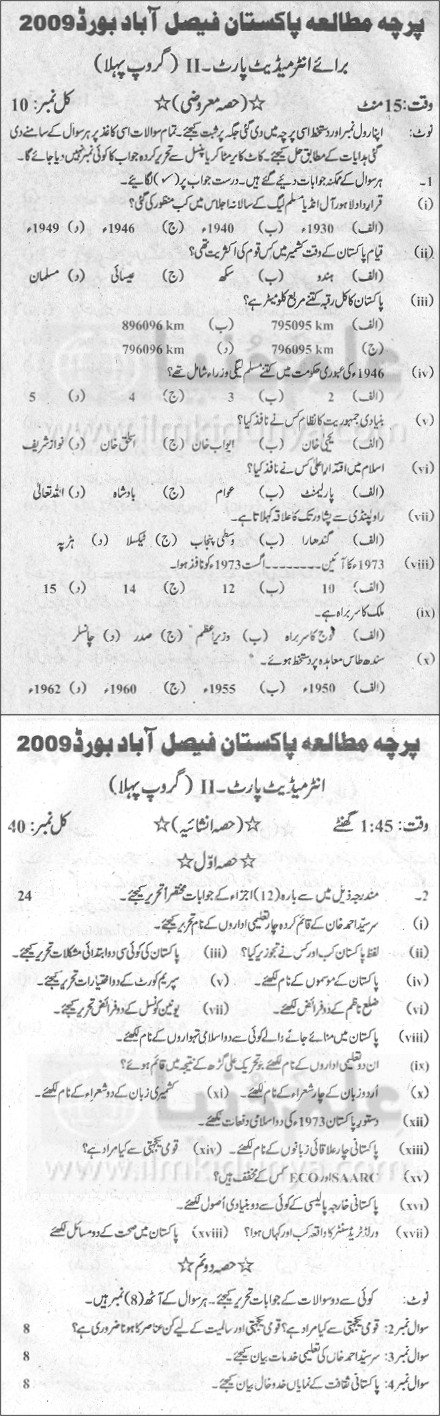 پرچہ مطالعہ پاکستان فیصل آباد بورڈ 2009
برائے انٹرمیڈیٹ پارٹ۔ II (گروپ پہلا)
وقت: 15 منٹ ☆(حصہ معروضی)☆ کل نمبر: 10
نوٹ: اپنا رول نمبر اور دستخط اسی پرچہ میں دی گئی جگہ پر ثبت کیجئے۔ تمام سوالات اسی کاغذ پر ہر سوال کے سامنے دی
گئی ہدایات کے مطابق حل کیجئے۔ کاٹ کر یا مٹا کر یا پنسل سے تحریر کردہ جواب کا کوئی نمبر نہیں دیا جائے گا۔
1۔ ہر سوال کے ممکنہ جوابات دیئے گئے ہیں۔ درست جواب پر (✓) لگائیے۔
(i) قرارداد لاہور آل انڈیا مسلم لیگ کے سالانہ اجلاس میں کب منظور کی گئی؟
(الف) 1930ء (ب) 1940ء (ج) 1946ء (د) 1949ء
(ii) قیام پاکستان کے وقت کشمیر میں کس قوم کی اکثریت تھی؟
(الف) ہندو (ب) سکھ (ج) عیسائی (د) مسلمان
(iii) پاکستان کا کل رقبہ کتنے مربع کلومیٹر ہے؟
(الف) 795095 km (ب) 896096 km
(ج) 796095 km (د) 796096 km
(iv) 1946ء کی عبوری حکومت میں کتنے مسلم لیگی وزراء شامل تھے؟
(الف) 2 (ب) 3 (ج) 4 (د) 5
(v) بنیادی جمہوریت کا نظام کس نے نافذ کیا؟
(الف) یحییٰ خان (ب) ایوب خان (ج) اسحٰق خان (د) نواز شریف
(vi) اسلام میں اقتدار اعلیٰ کس نے نافذ کیا؟
(الف) پارلیمنٹ (ب) عوام (ج) بادشاہ (د) اللہ تعالیٰ
(vii) راولپنڈی سے پشاور تک کا علاقہ کہلاتا ہے۔
(الف) گندھارا (ب) وسطی پنجاب (ج) ٹیکسلا (د) ہڑپہ
(viii) 1973ء کا آئین ۔۔۔۔۔۔۔۔ اگست 1973ء کو نافذ ہوا۔
(الف) 10 (ب) 12 (ج) 14 (د) 15
(ix) ملک کا سربراہ ہے۔
(الف) فوج کا سربراہ (ب) وزیر اعظم (ج) صدر (د) چانسلر
(x) سندھ طاس معاہدہ پر دستخط ہوئے۔
(الف) 1950ء (ب) 1955ء (ج) 1960ء (د) 1962ء
پرچہ مطالعہ پاکستان فیصل آباد بورڈ 2009
انٹرمیڈیٹ پارٹ۔ II (گروپ پہلا)
وقت: 1:45 گھنٹے ☆(حصہ انشائیہ)☆ کل نمبر: 40
☆حصہ اوّل☆
2۔ مندرجہ ذیل میں سے بارہ (12) اجزاء کے جوابات مختصراً تحریر کیجئے۔ 24
(i) سرسیّد احمد خان کے قائم کردہ چار تعلیمی اداروں کے نام تحریر کیجئے۔
(ii) لفظ پاکستان کب اور کس نے تجویز کیا؟ (iii) پاکستان کی کوئی سی دو ابتدائی مشکلات تحریر کیجئے۔
(iv) پاکستان کے موسموں کے نام لکھئے۔ (v) سپریم کورٹ کے دو اختیارات تحریر کیجئے۔
(vi) ضلع ناظم کے دو فرائض لکھئے۔ (vii) یونین کونسل کے دو فرائض تحریر کیجئے۔
(viii) پاکستان میں منائے جانے والے کوئی سے دو اسلامی تہواروں کے نام لکھئے۔
(ix) ان دو تعلیمی اداروں کے نام لکھئے جو تحریک علی گڑھ کے نتیجہ میں قائم ہوئے؟
(x) اُردو زبان کے چار شعراء کے نام لکھئے۔ (xi) کشمیری زبان کے دو شعراء کے نام لکھئے۔
(xii) دستور پاکستان 1973ء کی دو اسلامی دفعات لکھئے۔
(xiii) پاکستانی چار علاقائی زبانوں کے نام لکھئے۔ (xiv) قومی یکجہتی سے کیا مراد ہے؟
(xv) SAARC اور ECO کس کے مخفف ہیں؟
(xvi) پاکستانی خارجہ پالیسی کے کوئی سے دو بنیادی اُصول لکھئے۔
(xvii) ورلڈ ٹریڈ سنٹر کا واقعہ کب اور کہاں ہوا؟ (xviii) پاکستان میں صحت کے دو مسائل لکھئے
☆حصہ دوئم☆
نوٹ: کوئی سے دو سوالات کے جوابات تحریر کیجئے۔ ہر سوال کے آٹھ (8) نمبر ہیں۔
سوال نمبر 2: قومی یکجہتی سے کیا مراد ہے؟ قومی یکجہتی اور سالمیت کے لیے کن عناصر کا ہونا ضروری ہے؟ 8
سوال نمبر 3: سرسیّد احمد خاں کی تعلیمی خدمات بیان کیجئے۔ 8
سوال نمبر 4: پاکستانی ثقافت کے نمایاں خدوخال بیان کیجئے۔ 8